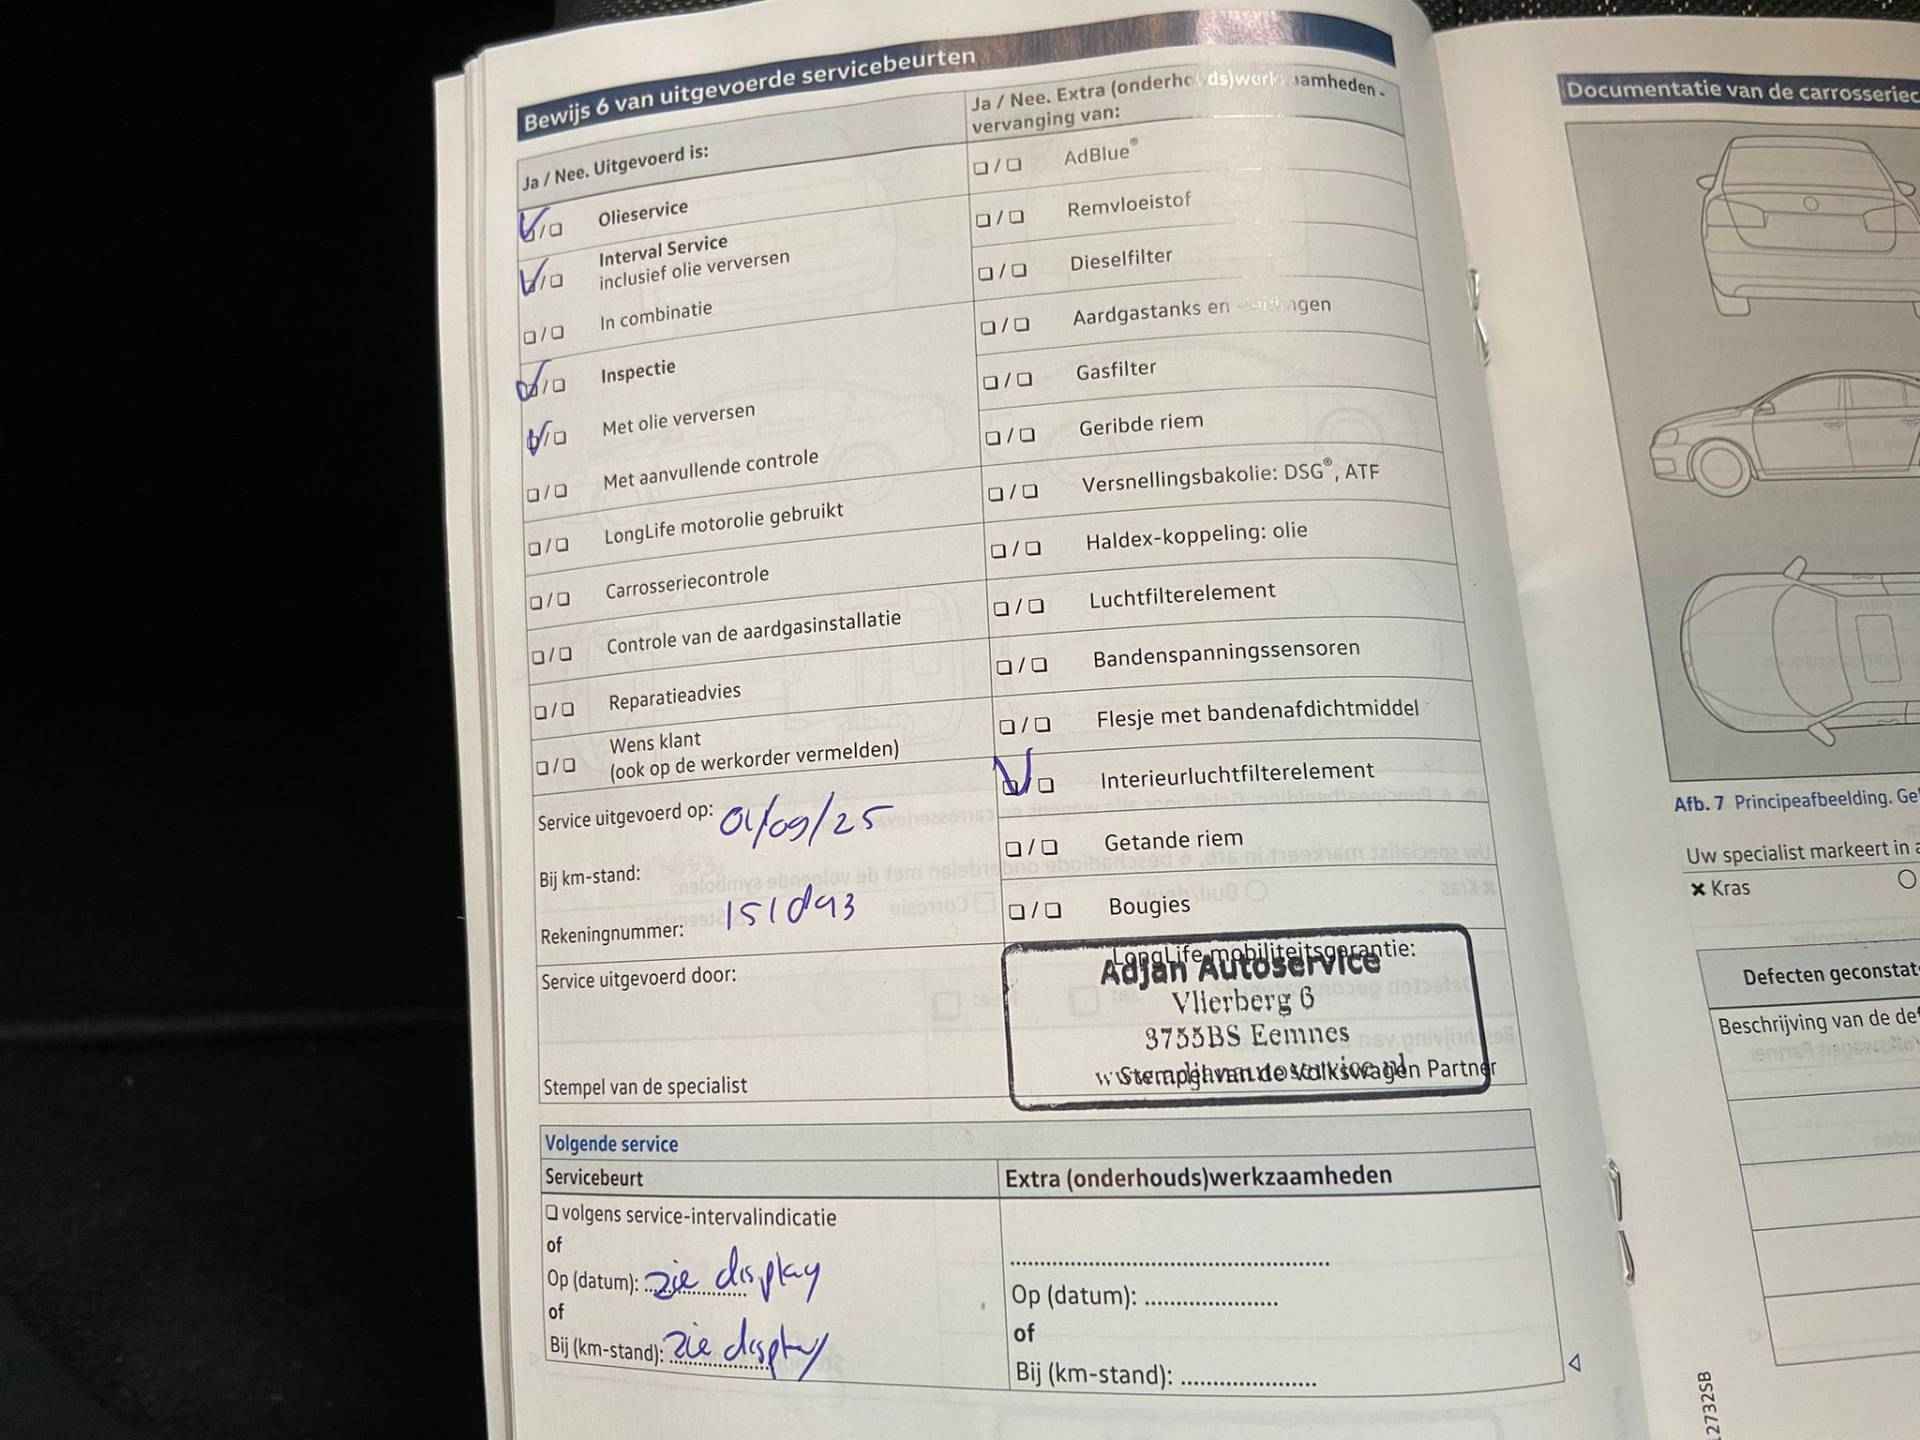 Bewijs 6 van uitgevoerde servicebeurten
Ja / Nee. Uitgevoerd is:
Olieservice
Interval Service
inclusief olie verversen
In combinatie
Inspectie
Met olie verversen
Met aanvullende controle
LongLife motorolie gebruikt
Carrosseriecontrole
Controle van de aardgasinstallatie
Reparatieadvies
Wens klant
(ook op de werkorder vermelden)
Service uitgevoerd op: 01/09/25
Bij km-stand:
151093
Rekeningnummer:
Service uitgevoerd door:
Stempel van de specialist
Ja / Nee. Extra (onderhouds)werkzaamheden -
vervanging van:
AdBlue®
Remvloeistof
Dieselfilter
Aardgastanks en
Gasfilter
Geribde riem
Versnellingsbakolie: DSG®, ATF
Haldex-koppeling: olie
Luchtfilterelement
Bandenspanningssensoren
Flesje met bandenafdichtmiddel
Interieurluchtfilterelement
Getande riem
Bougies
LongLife mobiliteitsgarantie:
Adjan Autoservice
Vlierberg 6
3755BS Eemnes
Stempel van de Volkswagen Partner
Volgende service
Servicebeurt
volgens service-intervalindicatie
of
Op (datum): zie display
of
Bij (km-stand): zie display
Extra (onderhouds)werkzaamheden
Op (datum):
of
Bij (km-stand):
Documentatie van de
Afb. 7 Principeafbeelding.
Uw specialist markeert in
× Kras
Defecten
Beschrijving van de